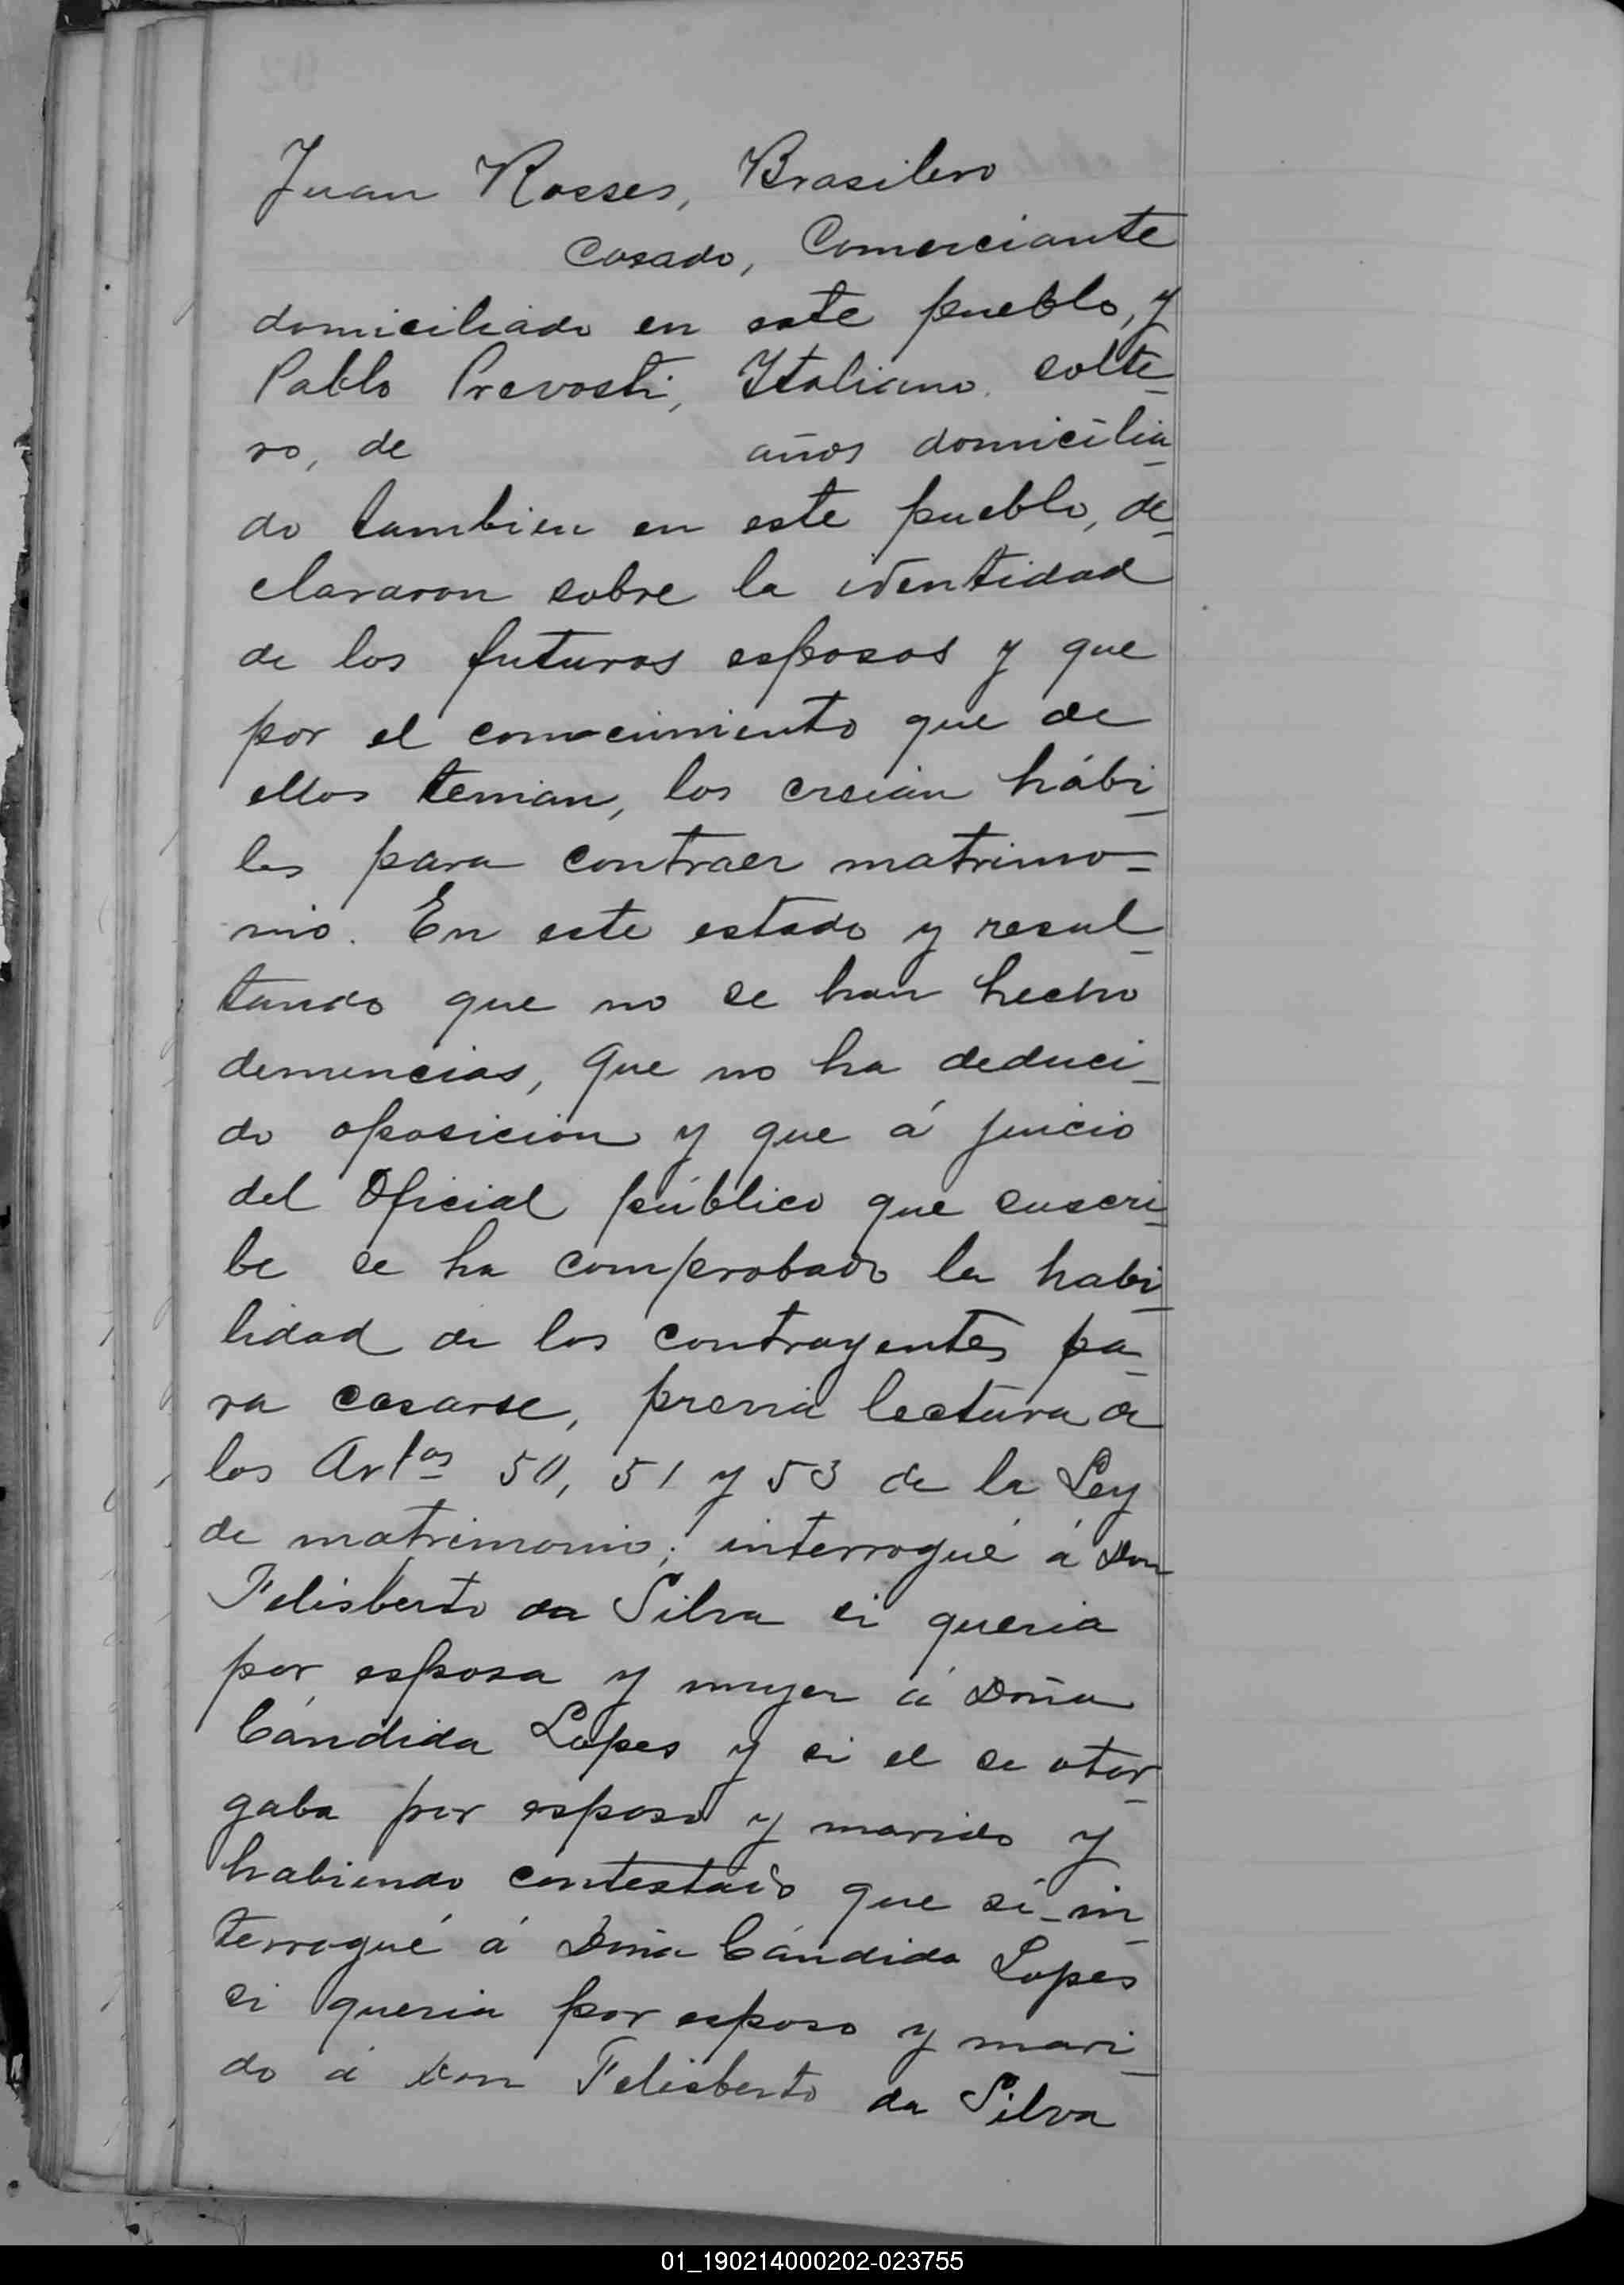 Juan Rosses, Brasilero
Casado, Comerciante
domiciliado en este pueblo, y
Pablo Prevosti, Italiano. solte-
ro, de años domicilia-
do tambien en este pueblo, de-
clararon sobre la identidad
de los futuros esposos y que
por el conocimiento que de
ellos tenian, los creian hábi-
les para contraer matrimo=
nio. En este estado y resul-
tando que no se han hecho
denuncias, que no ha deduci-
do oposicion y que á juicio
del Oficial público que suscri-
be se ha comprobado la habi-
lidad de los contrayentes pa-
ra casarse, previa lectura de
los Artos 50, 51 y 53 de la Ley
de matrimonio; interrogué á Don
Felisberto da Silva si queria
por esposa y muger á Doña
Cándida Lopes y si el se otor-
gaba por esposo y marido y
habiendo contestado que sí-in-
terrogué á Doña Cándida Lopes
si queria por esposo y mari-
do á Don Felisberto da Silva
01_190214000202-023755